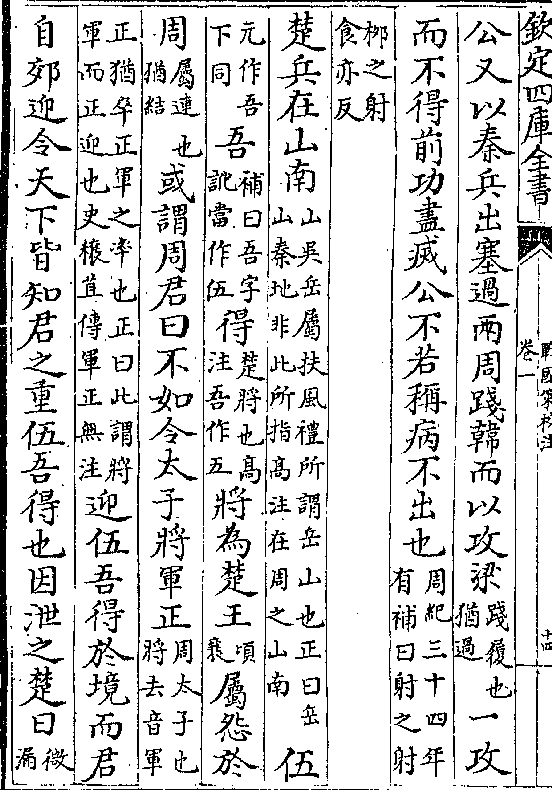 欽定四庫全書
戰國策校注
卷一
十四
公又以秦兵出塞過兩周踐韓而以攻梁踐履也猶過一攻
而不得前功盡滅公不若稱病不出也周紀三十四年有補曰射之射
栁之射食亦反
楚兵在山南山吳岳屬扶風禮所謂岳山也正曰岳山秦地非此所指髙注在周之山南伍
元作吾下同吾補曰吾字訛當作伍得楚將也髙注吾作五將為楚王頃襄屬怨於
周屬連也猶結或謂周君曰不如令太子將軍正周太子也將去音軍
正猶卒正軍之率也正曰此謂將軍而正迎也史穰苴傳軍正無注迎伍吾得於境而君
自郊迎令天下皆知君之重伍吾得也因泄之楚曰微漏